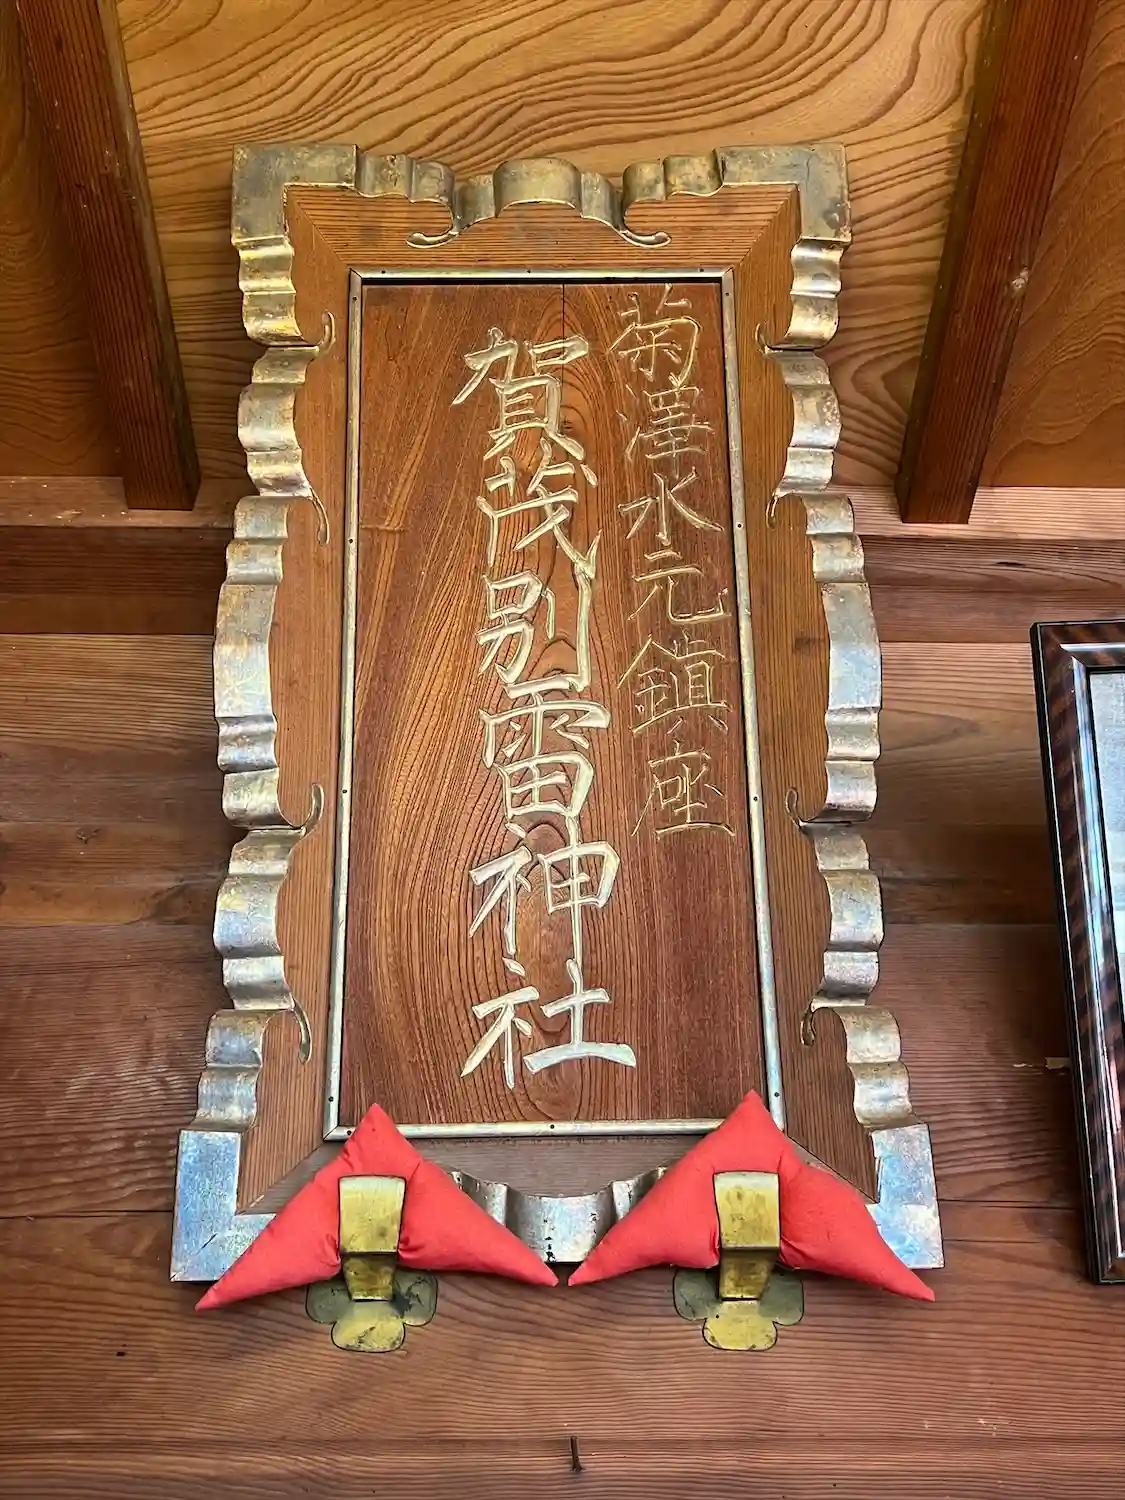 菊澤水元鎮座
賀茂別雷神社